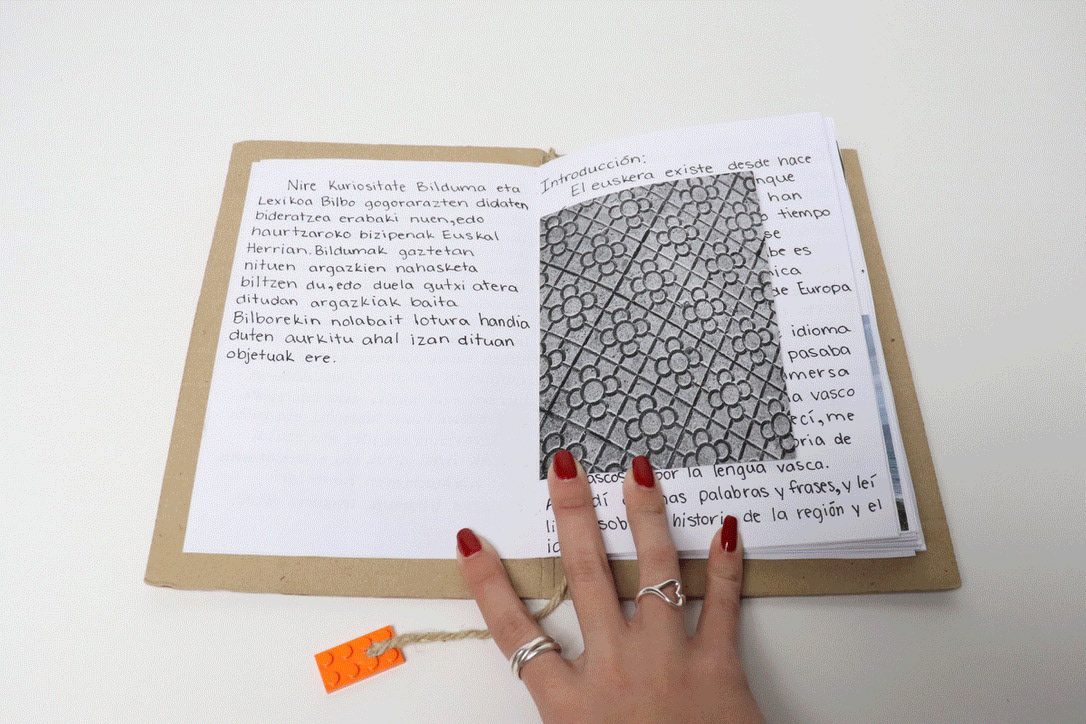 Nire Kuriositate Bilduma eta
Lexikoa Bilbo gogorarazten didaten
bideratzea erabaki nuen, edo
haurtzaroko bizipenak Euskal
Herrian. Bildumak gaztetan
nituen argazkien nahasketa
biltzen du, edo duela gutxi atera
ditudan argazkiak baita
Bilborekin nolabait lotura handia
duten aurkitu ahal izan dituan
objetuak ere.
Introducción:
El euskera existe desde hace
han
tiempo
se
es
de Europa
idioma
pasaba
vasco
me
de
por la lengua vasca.
palabras y frases, y leí
historia de la región y el